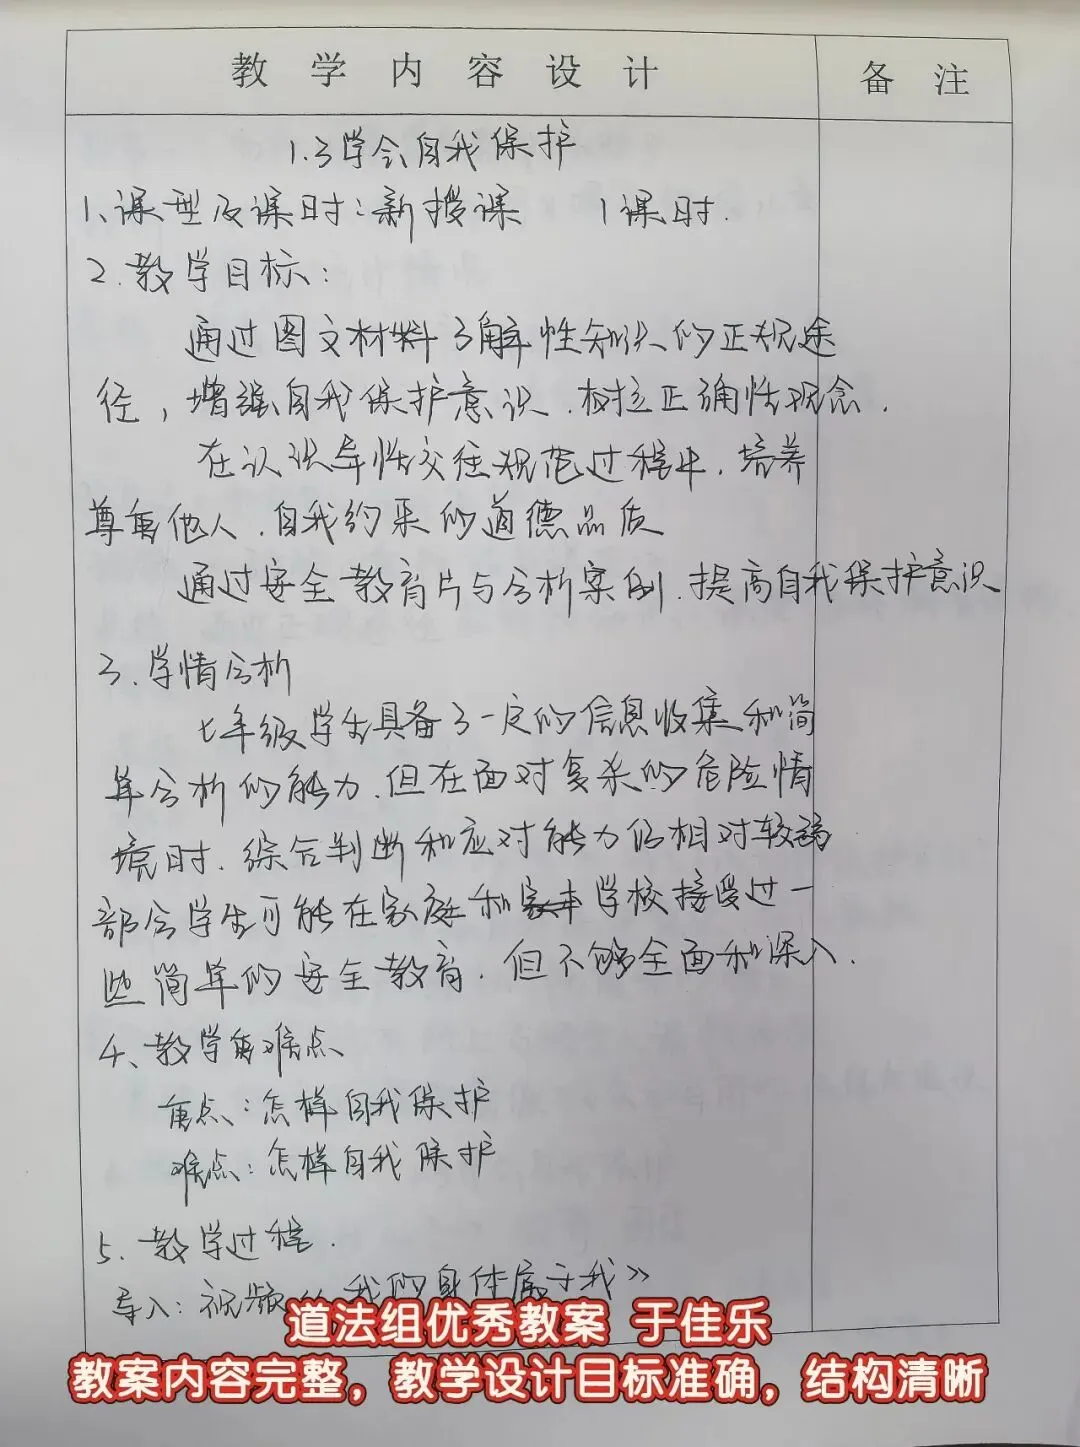 教学内容设计 备注
1.3学会自我保护
1、课型及课时:新授课 1课时.
2.教学目标:
通过图文材料了解性知识的正规途
径,增强自我保护意识.树立正确性观念.
在认识异性交往规范过程中.培养
尊重他人.自我约束的道德品质
通过安全教育片与分析案例.提高自我保护意识
3.学情分析
七年级学生具备了一定的信息收集和简
单分析的能力.但在面对复杂的危险情
境时.综合判断和应对能力仍相对较弱
部分学生可能在家庭和学校接受过一
些简单的安全教育.但不够全面和深入.
4、教学重难点
重点:怎样自我保护
难点:怎样自我保护
5.教学过程.
导入:视频《我的身体属于我》
道法组优秀教案 于佳乐
教案内容完整,教学设计目标准确,结构清晰